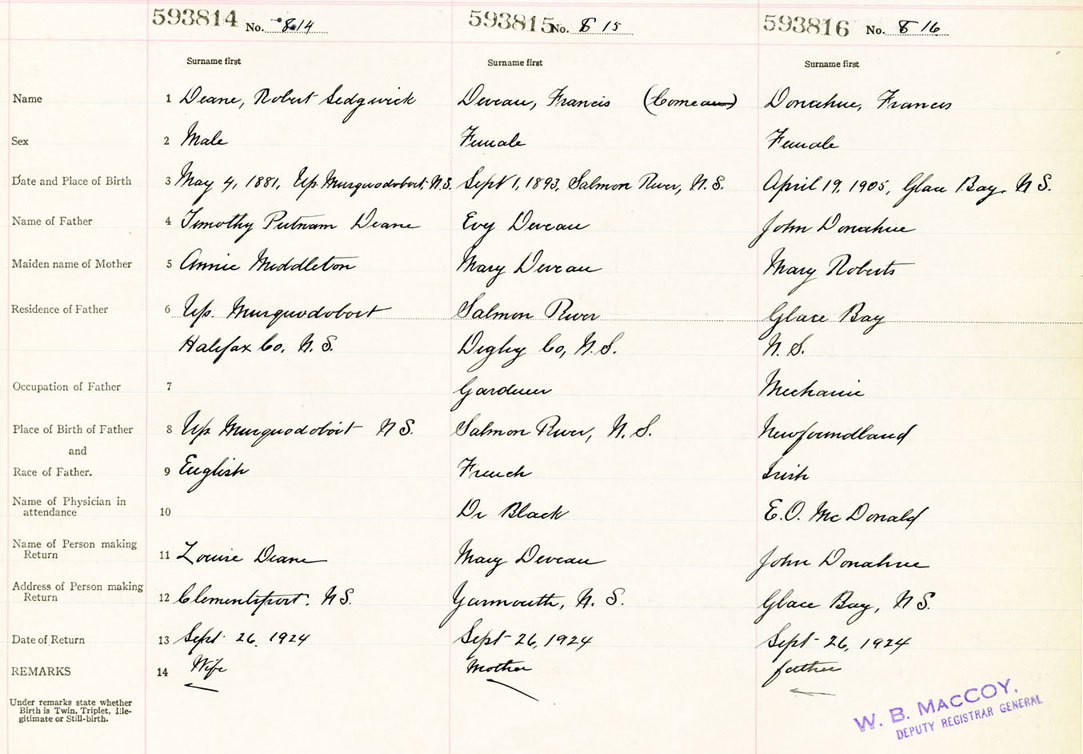 593814 No. 814 593815 No. 815 593816 No. 816
Surname first Surname first Surname first
Name 1 Deane, Robert Sedgwick Deveau, Francis (Comeau) Donahue, Frances
Sex 2 Male Female Female
Date and Place of Birth 3 May 4, 1881, Up. Musquodoboit, N.S. Sept 1, 1893, Salmon River, N.S. April 19, 1905, Glace Bay, N S.
Name of Father 4 Timothy Putnam Deane Evy Deveau John Donahue
Maiden name of Mother 5 Annie Middleton Mary Deveau Mary Roberts
Residence of Father 6 Up. Musquodoboit Salmon River Glace Bay
Halifax Co, N.S. Digby Co, N.S. N.S.
Occupation of Father 7 Gardener Mechanic
Place of Birth of Father 8 Up. Musquodoboit N S. Salmon River, N.S. Newfoundland
and
Race of Father. 9 English French Irish
Name of Physician in
attendance 10 Dr Black E.O. McDonald
Name of Person making
Return 11 Louise Deane Mary Deveau John Donahue
Address of Person making
Return 12 Clementsport. N S. Yarmouth, N.S. Glace Bay, N S.
Date of Return 13 Sept. 26, 1924 Sept 26, 1924 Sept 26, 1924
REMARKS 14 Wife Mother father
Under remarks state whether
Birth is Twin, Triplet, Ille-
gitimate or Still-birth.
W. B. MACCOY,
DEPUTY REGISTRAR GENERAL